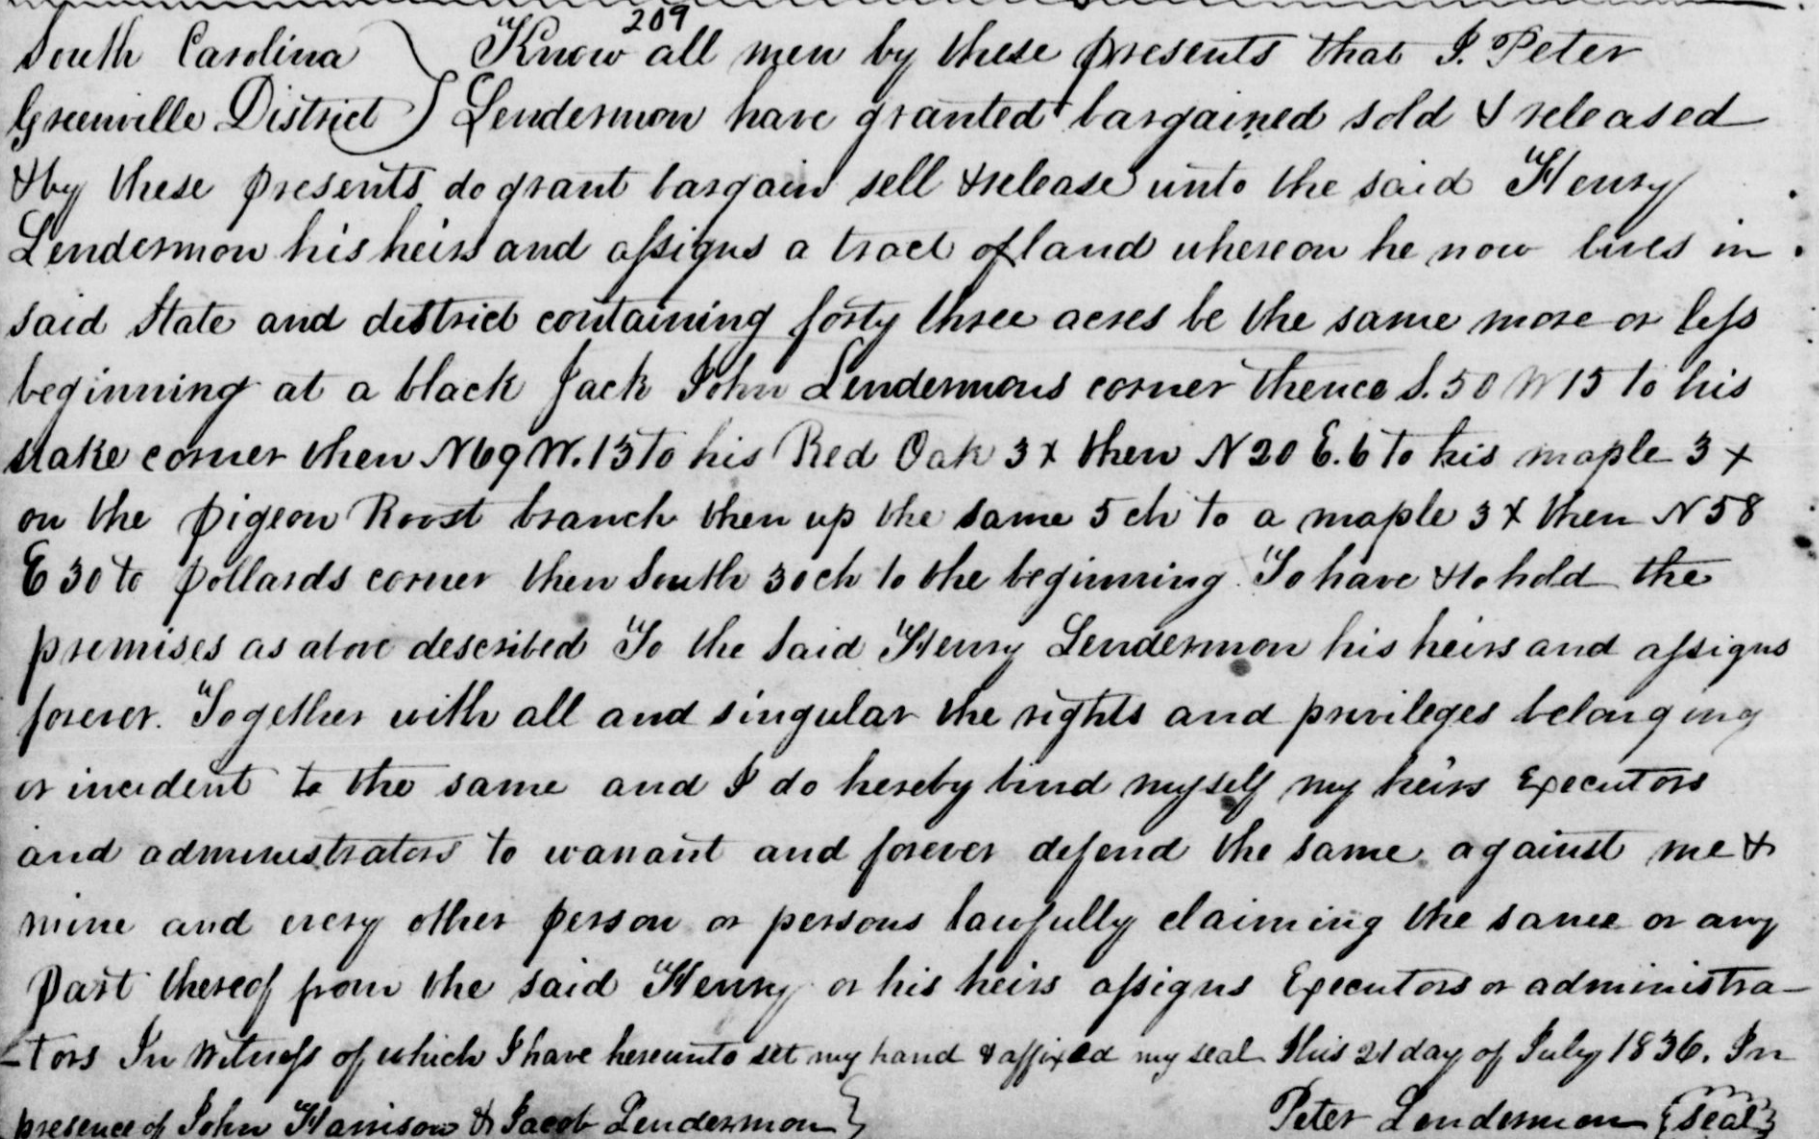 209
South Carolina } Know all men by these presents that I. Peter
Greenville District } Lendermon have granted bargained sold & released
& by these presents do grant bargain sell & release unto the said Henry
Lendermon his heirs and assigns a tract of land whereon he now lives in
said State and district containing forty three acres be the same more or less
beginning at a black Jack John Lendermons corner thence S. 50 W 15 to his
stake corner then N 69 W. 15 to his Red Oak 3 x then N 20 E. 6 to his maple 3 x
on the pigeon Roost branch then up the same 5 ch to a maple 3 x then N 58
E 30 to pollards corner then South 30 ch to the beginning. To have & to hold the
premises as above described To the said Henry Lendermon his heirs and assigns
forever. Together with all and singular the rights and privileges belonging
or incident to the same and I do hereby bind myself my heirs Executors
and administrators to warrant and forever defend the same against me &
mine and every other person or persons lawfully claiming the same or any
part thereof from the said Henry or his heirs assigns Executors or administra-
-tors In Witness of which I have hereunto set my hand & affixed my seal this 21 day of July 1836. In
presence of John Harrison & Jacob Lendermon } Peter Lendermon {seal}